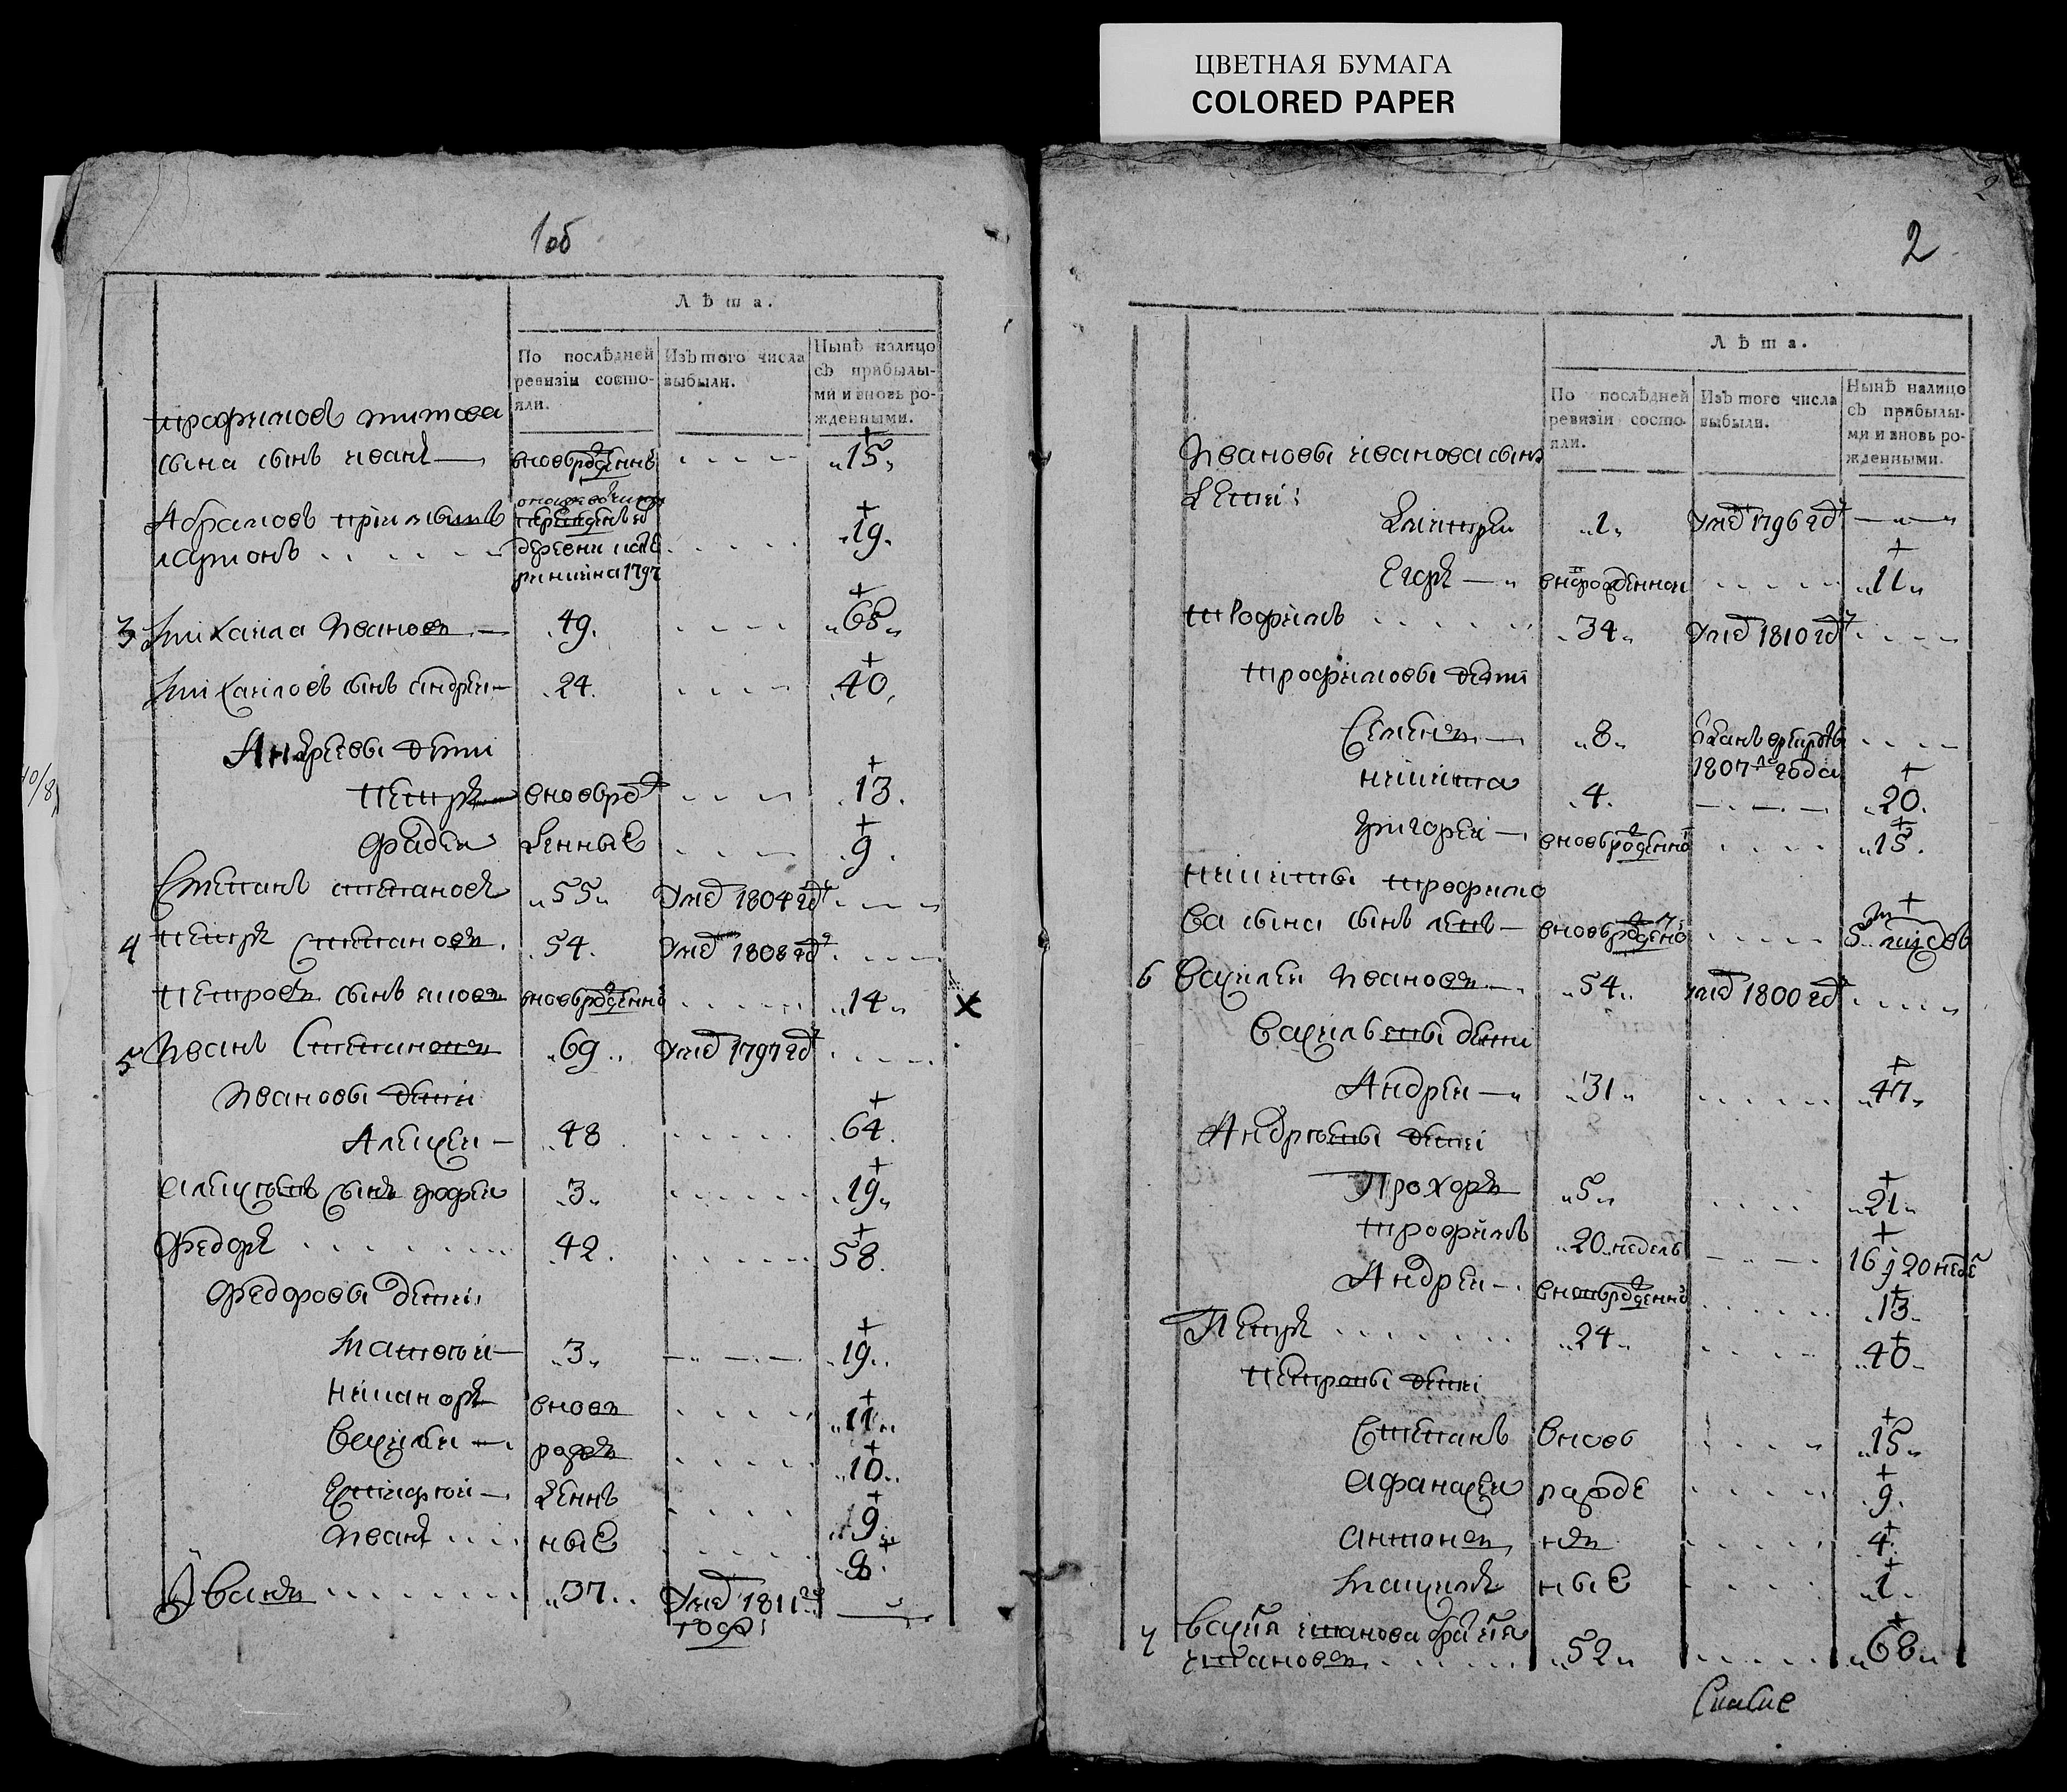 ЦВЕТНАЯ БУМАГА
COLORED PAPER
1об
Лѣта.
По послѣдней ревизіи состояли.
Изъ того числа выбыли.
Нынѣ налицо съ прибылыми и вновь рожденными.
трофимовъ титова
сына сынъ иванъ вновьрожденны „15„
Абрамовъ сынъ
19.
деревни 1797
3 михаила Ивановъ 49. „65„
михаиловъ сынъ андреи 24. 40.
Андреевы дети
петръ вновьрож 13.
фадеи денные 9.
Степанъ степановъ „55„ умеръ 1804 год
4 петръ степановъ 54. умеръ 1808 год
петровъ сынъ яковъ вновьрожденны „14„
5 Иванъ Степановъ „69„ умеръ 1797 год
Ивановы дети
Алексеи 48 64.
алексеевъ сынъ „3„ „19„
Федоръ 42. 58.
Федоровы дети
матвеи „3„ „19„
никаноръ вновъ „11„
василеи рож 10.
денъ 9
Иванъ ные 8.
„37.. умеръ 1811
году
2
2
Лѣта.
По послѣдней ревизіи состояли.
Изъ того числа выбыли.
Нынѣ налицо съ прибылыми и вновь рожденными.
Ивановы иванова сына
дети:
Дмитреи „1„ умеръ 1796 год
Егоръ вновьрожденнои „11„
трофимъ „34„ умеръ 1810 год
трофимовы дети
Семенъ „8„ зданъ врекруты
1807 года
никита 4. 20.
григореи вновьрожденны „15.
никиты трофимо
ва сына сынъ вновьрождены 5
6 Василеи Ивановъ „54„ умеръ 1800 год
Васильевы дети
Андреи „31„ „47„
Андреевы дети
Прохоръ „5„ „21„
трофимъ „20„недель 16 20неде
Андреи вновьрожденны 13.
Петръ „24„ 40
петровы дети
Степанъ вновь „15„
афанасеи рожде 9.
антонъ 4.
максимъ ные 1.
„52„ „68„